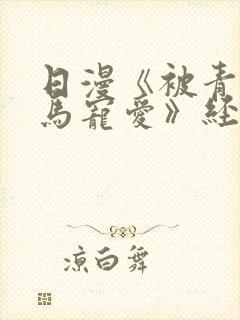 日漫《被青
馬寵愛》经
凉白舞